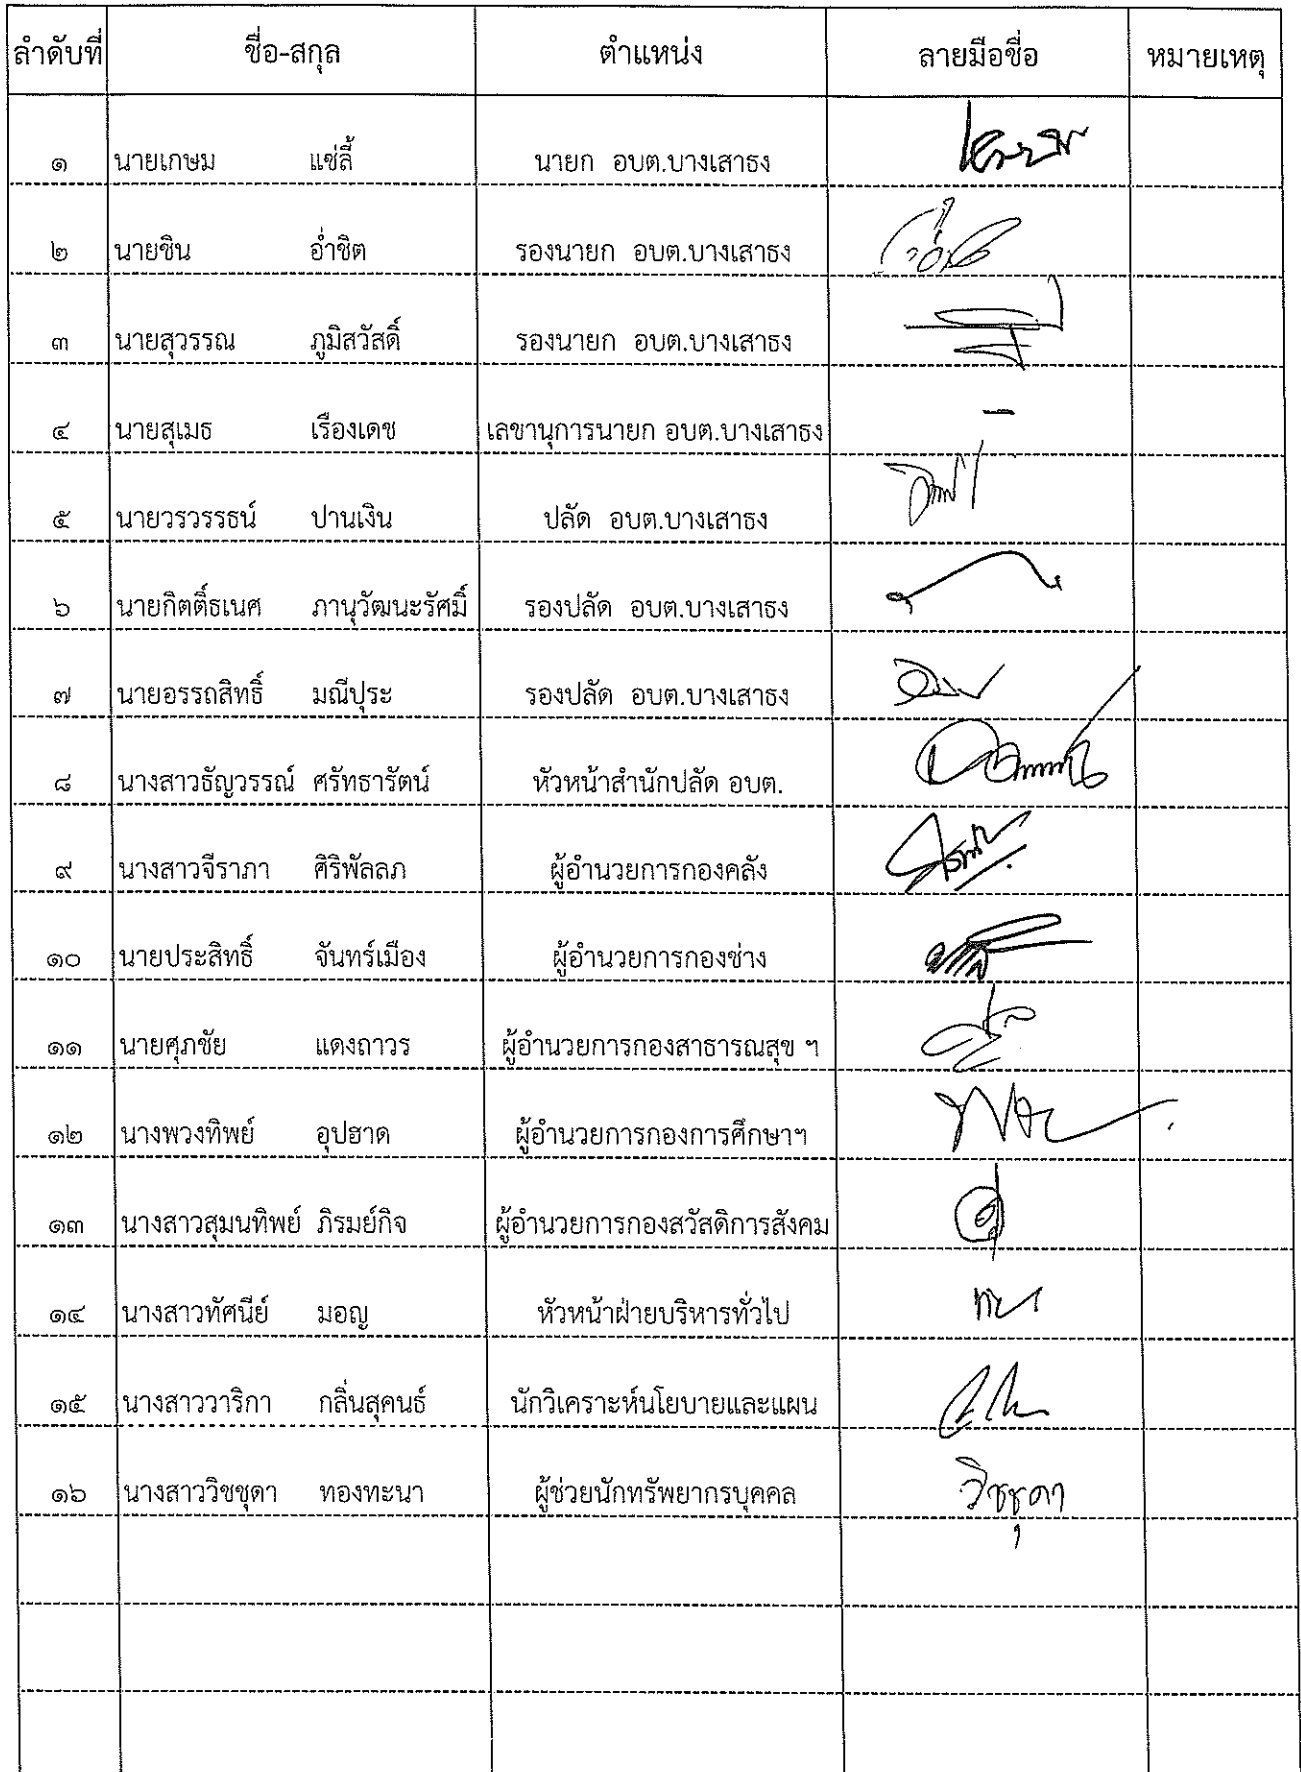 ลำดับที่ ชื่อ-สกุล ตำแหน่ง ลายมือชื่อ หมายเหตุ
๑ นายเกษม แซ่ลี้ นายก อบต.บางเสาธง
๒ นายชิน อ่ำชิต รองนายก อบต.บางเสาธง
๓ นายสุวรรณ ภูมิสวัสดิ์ รองนายก อบต.บางเสาธง
๔ นายสุเมธ เรืองเดช เลขานุการนายก อบต.บางเสาธง -
๕ นายวรวรรธน์ ปานเงิน ปลัด อบต.บางเสาธง
๖ นายกิตติ์ธเนศ ภานุวัฒนะรัศมิ์ รองปลัด อบต.บางเสาธง
๗ นายอรรถสิทธิ์ มณีปุระ รองปลัด อบต.บางเสาธง
๘ นางสาวธัญวรรณ์ ศรัทธารัตน์ หัวหน้าสำนักปลัด อบต.
๙ นางสาวจีราภา ศิริพัลลภ ผู้อำนวยการกองคลัง
๑๐ นายประสิทธิ์ จันทร์เมือง ผู้อำนวยการกองช่าง
๑๑ นายศุภชัย แดงถาวร ผู้อำนวยการกองสาธารณสุข ฯ
๑๒ นางพวงทิพย์ อุปฮาด ผู้อำนวยการกองการศึกษาฯ
๑๓ นางสาวสุมนทิพย์ ภิรมย์กิจ ผู้อำนวยการกองสวัสดิการสังคม
๑๔ นางสาวทัศนีย์ มอญ หัวหน้าฝ่ายบริหารทั่วไป
๑๕ นางสาววาริกา กลิ่นสุคนธ์ นักวิเคราะห์นโยบายและแผน
๑๖ นางสาววิชชุดา ทองทะนา ผู้ช่วยนักทรัพยากรบุคคล วิชชุดา